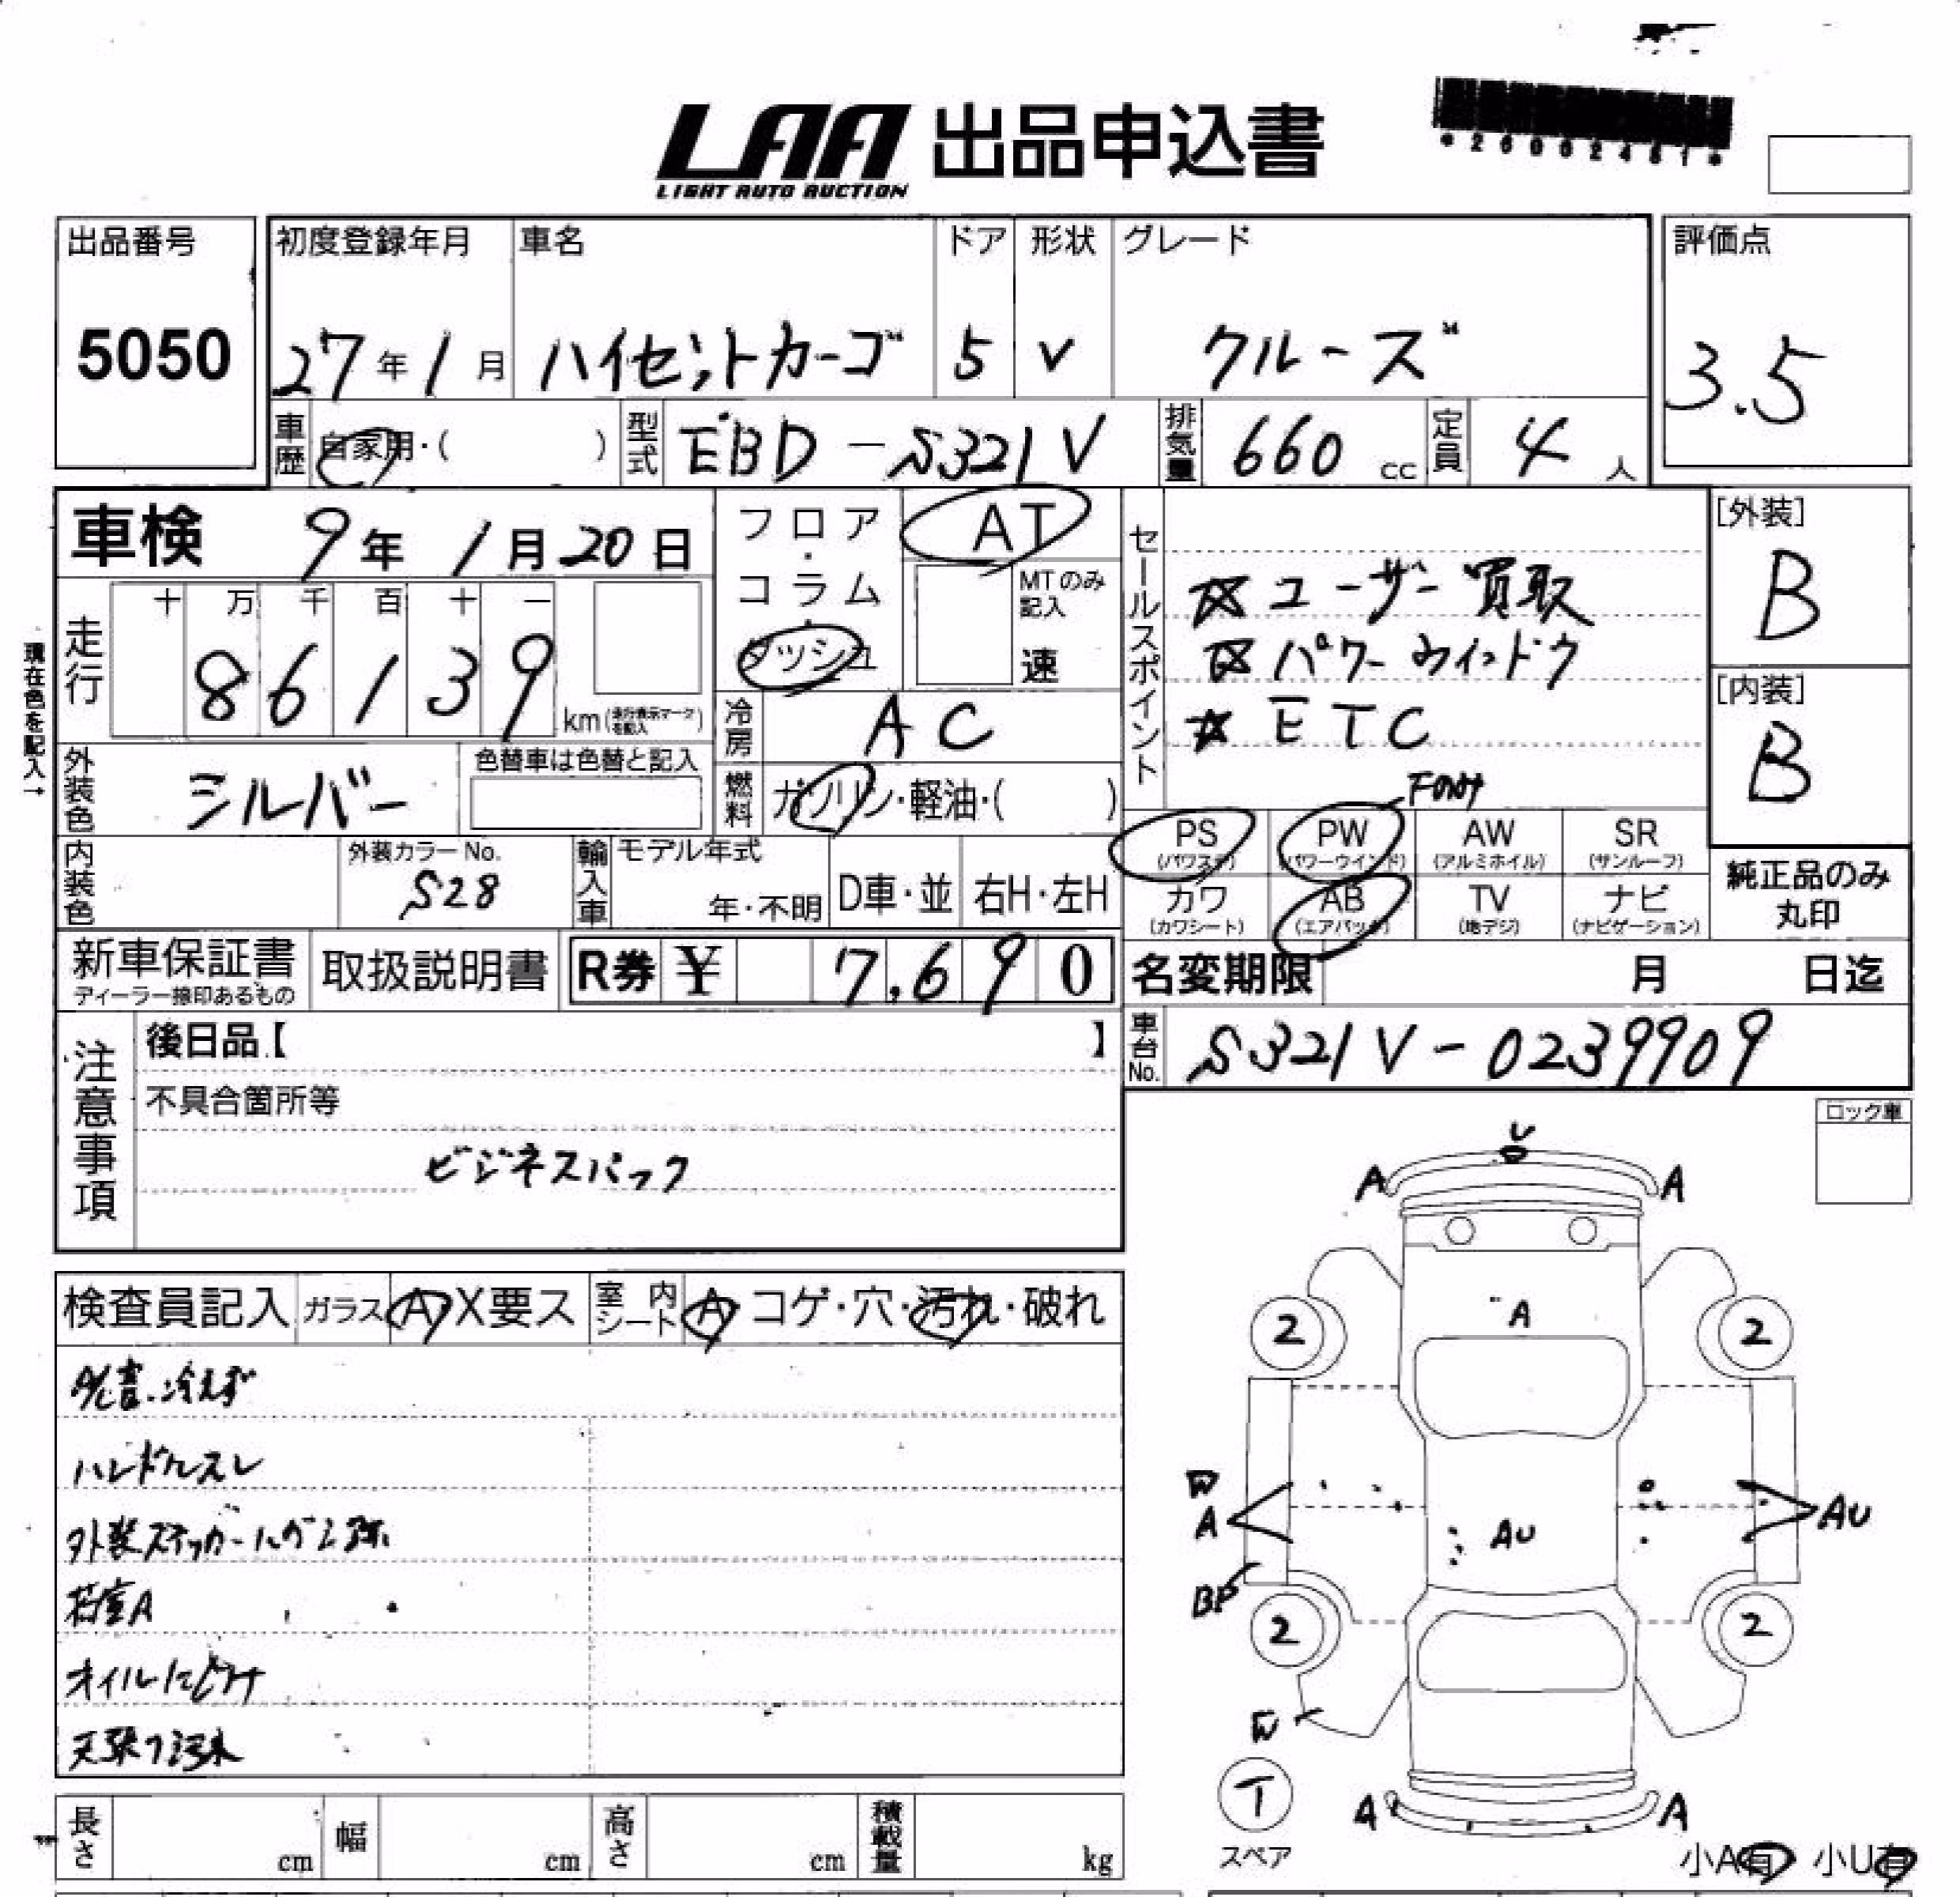 LAA 出品申込書
LIGHT AUTO AUCTION
*26002481*
出品番号 初度登録年月 車名 ドア 形状 グレード 評価点
5050 27年1月 ハイゼットカーゴ 5 V クルーズ 3.5
車歴 自家用・( ) 型式 EBD-S321V 排気量 660 cc 定員 4 人
車検 9年1月20日 フロア・コラム・ダッシュ AT セールスポイント [外装]
MTのみ記入 速 B
☆ユーザー買取
☆パワーウインドウ
☆ETC
現在色を記入→
走行 十 万 千 百 十 一
86139 km(走行表示マークを記入) [内装]
冷房 AC B
外装色 シルバー 色替車は色替と記入 燃料 ガソリン・軽油・( )
Fのみ
PS (パワステ) PW (パワーウインド) AW (アルミホイル) SR (サンルーフ)
内装色 外装カラーNo. S28 輸入車 モデル年式 年・不明 D車・並 右H・左H
カワ (カワシート) AB (エアバック) TV (地デジ) ナビ (ナビゲーション) 純正品のみ丸印
新車保証書 ディーラー捺印あるもの 取扱説明書 R券 ¥ 7,690 名変期限 月 日迄
注意事項 後日品【 】 車台No. S321V-0239909
不具合箇所等
ビジネスパック
ロック車
検査員記入 ガラス A X要ス 室内シート A・コゲ・穴・汚れ・破れ
冷えず
ハンドルスレ
外装ステッカーハガシ跡
荷室A
オイルにじみ
天張り汚れ
U
A A
A
2 2
W
A AU AU
BP
2 2
W
T
スペア
A A
小A有 小U有
長さ cm 幅 cm 高さ cm 積載量 kg